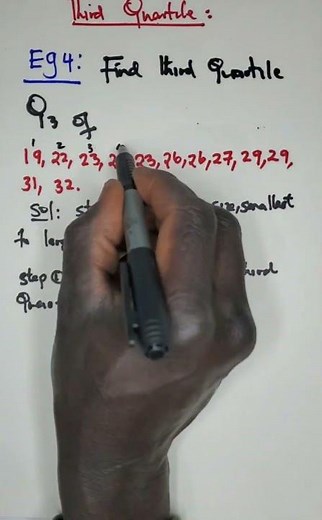 Third Quartile:
Eg 4: Find third Quartile
Q₃ of
1 2 3
19, 22, 23, 23, 26, 26, 27, 29, 29,
31, 32.
Sol: size, smallest
To
step ① third